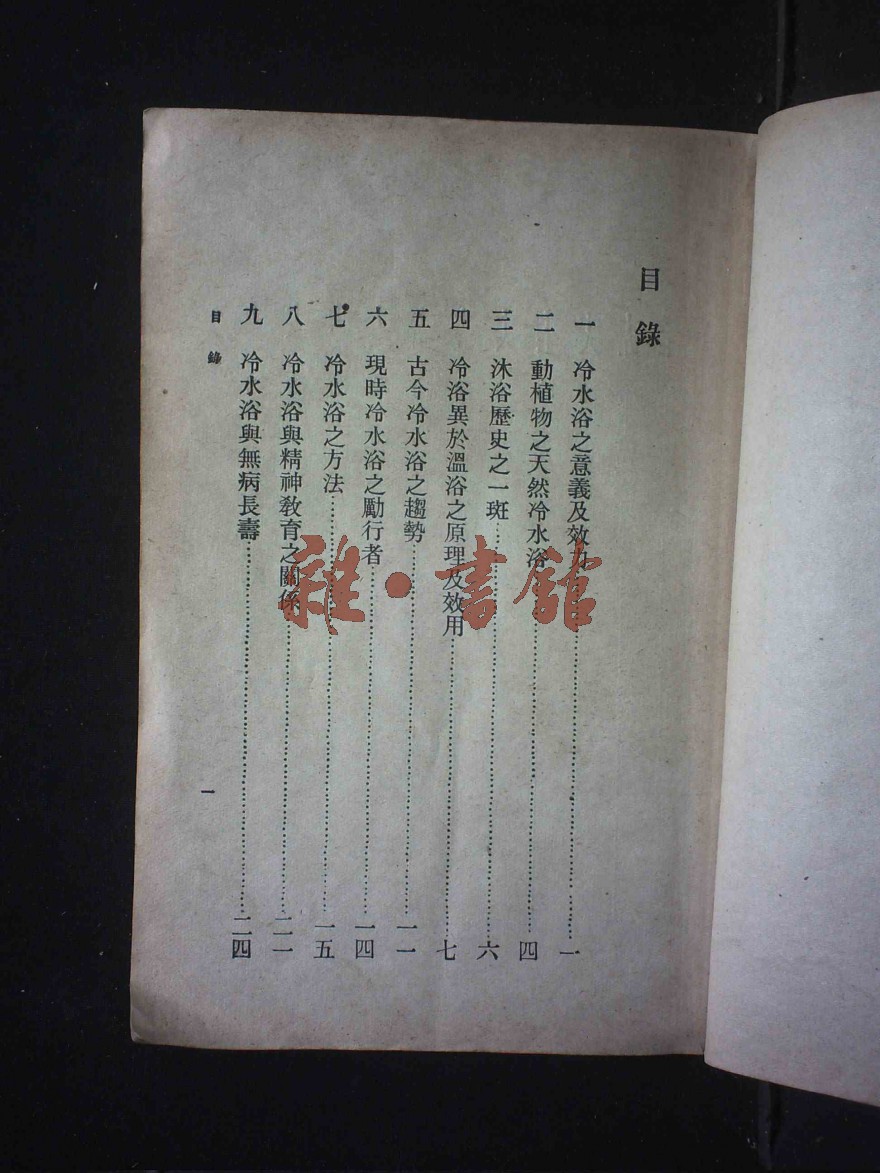 目錄
一 冷水浴之意義及效力……一
二 動植物之天然冷水浴……四
三 沐浴歷史之一斑……六
四 冷浴異於溫浴之原理及效用……七
五 古今冷水浴之趨勢……一一
六 現時冷水浴之勵行者……一四
七 冷水浴之方法……一五
八 冷水浴與精神敎育之關係……二一
九 冷水浴與無病長壽……二四
目錄
一
雜·書館